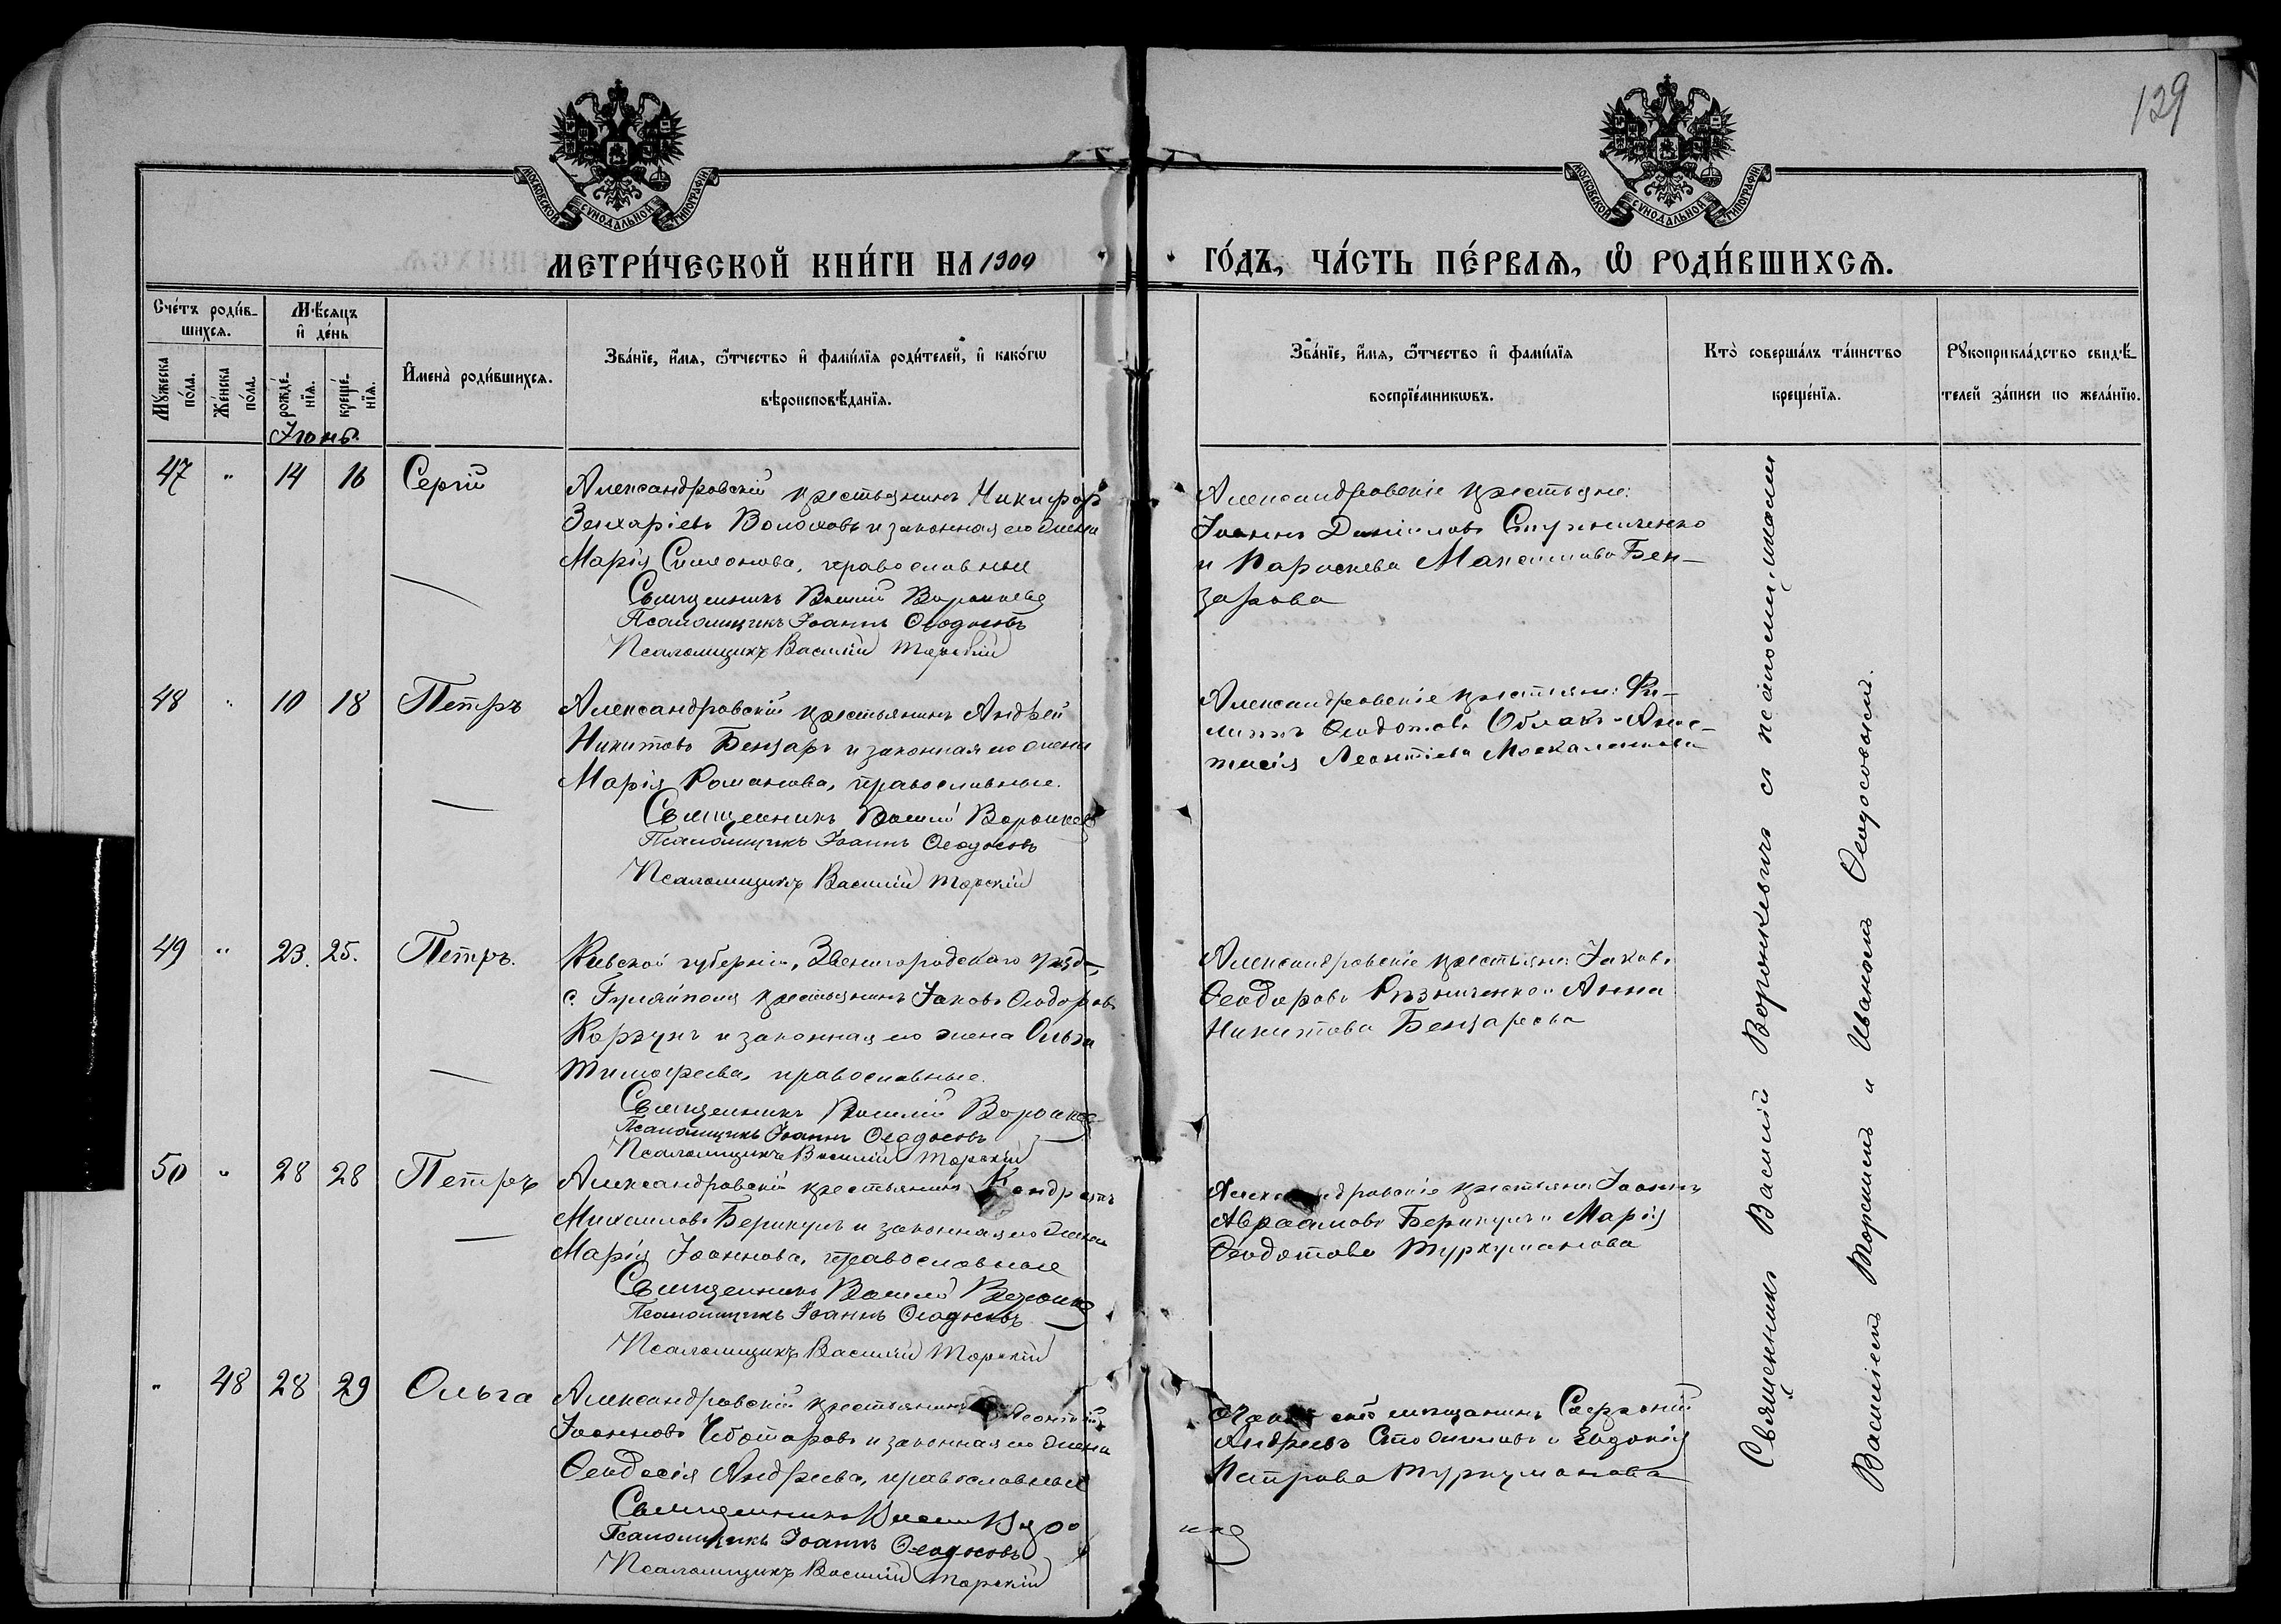 129
МОСКОВСКОЙ СѴНОДАЛЬНОЙ ТИПОГРАФІИ
МОСКОВСКОЙ СѴНОДАЛЬНОЙ ТИПОГРАФІИ
МЕТРИ́ЧЕСКОЙ КНИ́ГИ НА 1909 ГО́ДЪ, ЧА́СТЬ ПЕ́РВАѦ, Ѡ РОДИ́ВШИХСѦ.
Сче́тъ роди́в-
шихсѧ.
Мꙋ́жеска по́ла.
Же́нска по́ла.
Мѣ́сѧцъ
и҆ де́нь
рожде́-нїѧ.
креще́-нїѧ.
И҆мена̀ роди́вшихсѧ.
Зва́нїе, и҆́мѧ, ѻ҆́тчество и҆ фами́лїѧ роди́телей, и҆ како́гѡ
вѣроисповѣ́данїѧ.
Зва́нїе, и҆́мѧ, ѻ҆́тчество и҆ фами́лїѧ
воспрїе́мникѡвъ.
Кто̀ соверша́лъ та́инство
креще́нїѧ.
Рꙋкоприкла́дство свидѣ́-
телей за́писи по жела́нїю.
Іюнь.
47 " 14 16 Сергій
Александровскій крестьянинъ Никифоръ
Захаріевъ Волоховъ и законная его жена
Марія Симеонова, православные
Священникъ Василій Воронкевичъ
Псаломщикъ Іоаннъ Ѳеодосовъ
Псаломщикъ Василій Торскій
Александровскіе крестьяне:
Іоаннъ Даніиловъ
и Параскева Максимова Бен-
зарова
48 " 10 18 Петръ
Александровскій крестьянинъ Андрей
Никитовъ Бензаръ и законная его жена
Марія Романова, православные.
Священникъ Василій Воронкев
Псаломщикъ Іоаннъ Ѳеодосовъ
Псаломщикъ Василій Торскій
Александровскіе крестьяне: Фи-
липпъ Ѳеодотовъ Облакъ и Анас-
тасія Леонтіева Москаленкова
49 " 23. 25. Петръ.
Кіевской губерніи, Звенигородскаго уѣзда,
с. Гуляйполя крестьянинъ Іаковъ Ѳеодоровъ
Коржунъ и законная его жена Ольга
Тимофеева, православные.
Священникъ Василій Воронкев
Псаломщикъ Іоаннъ Ѳеодосовъ
Псаломщикъ Василій Торскій
Александровскіе крестьяне: Іаковъ
Ѳеодоровъ Рѣзниченко и Анна
Никитова Бензарева
50 " 28 28 Петръ
Александровскій крестьянинъ Кондратъ
Михаиловъ Берикулъ и законная его жена
Марія Іоаннова, православные
Священникъ Василій
Псаломщикъ Іоаннъ Ѳеодосовъ
Псаломщикъ Василій Торскій
Александровскіе крестьяне Іоаннъ
Авраамовъ Берикулъ и Марія
Ѳеодотова Туркуманова
" 48 28 29 Ольга
Александровскій крестьянинъ Леонтій
Іоанновъ Чеботаровъ и законная его жена
Ѳеодосія Андреева, православные
Священникъ
Псаломщикъ Іоаннъ Ѳеодосовъ
Псаломщикъ Василій Торскій
мѣщанинъ Софроній
Андреевъ и Евдокія
Петрова Туркуманова
Священникъ Василій Воронкевичъ съ псаломщиками
Василіемъ Торскимъ и Иваномъ Ѳеодосовымъ.